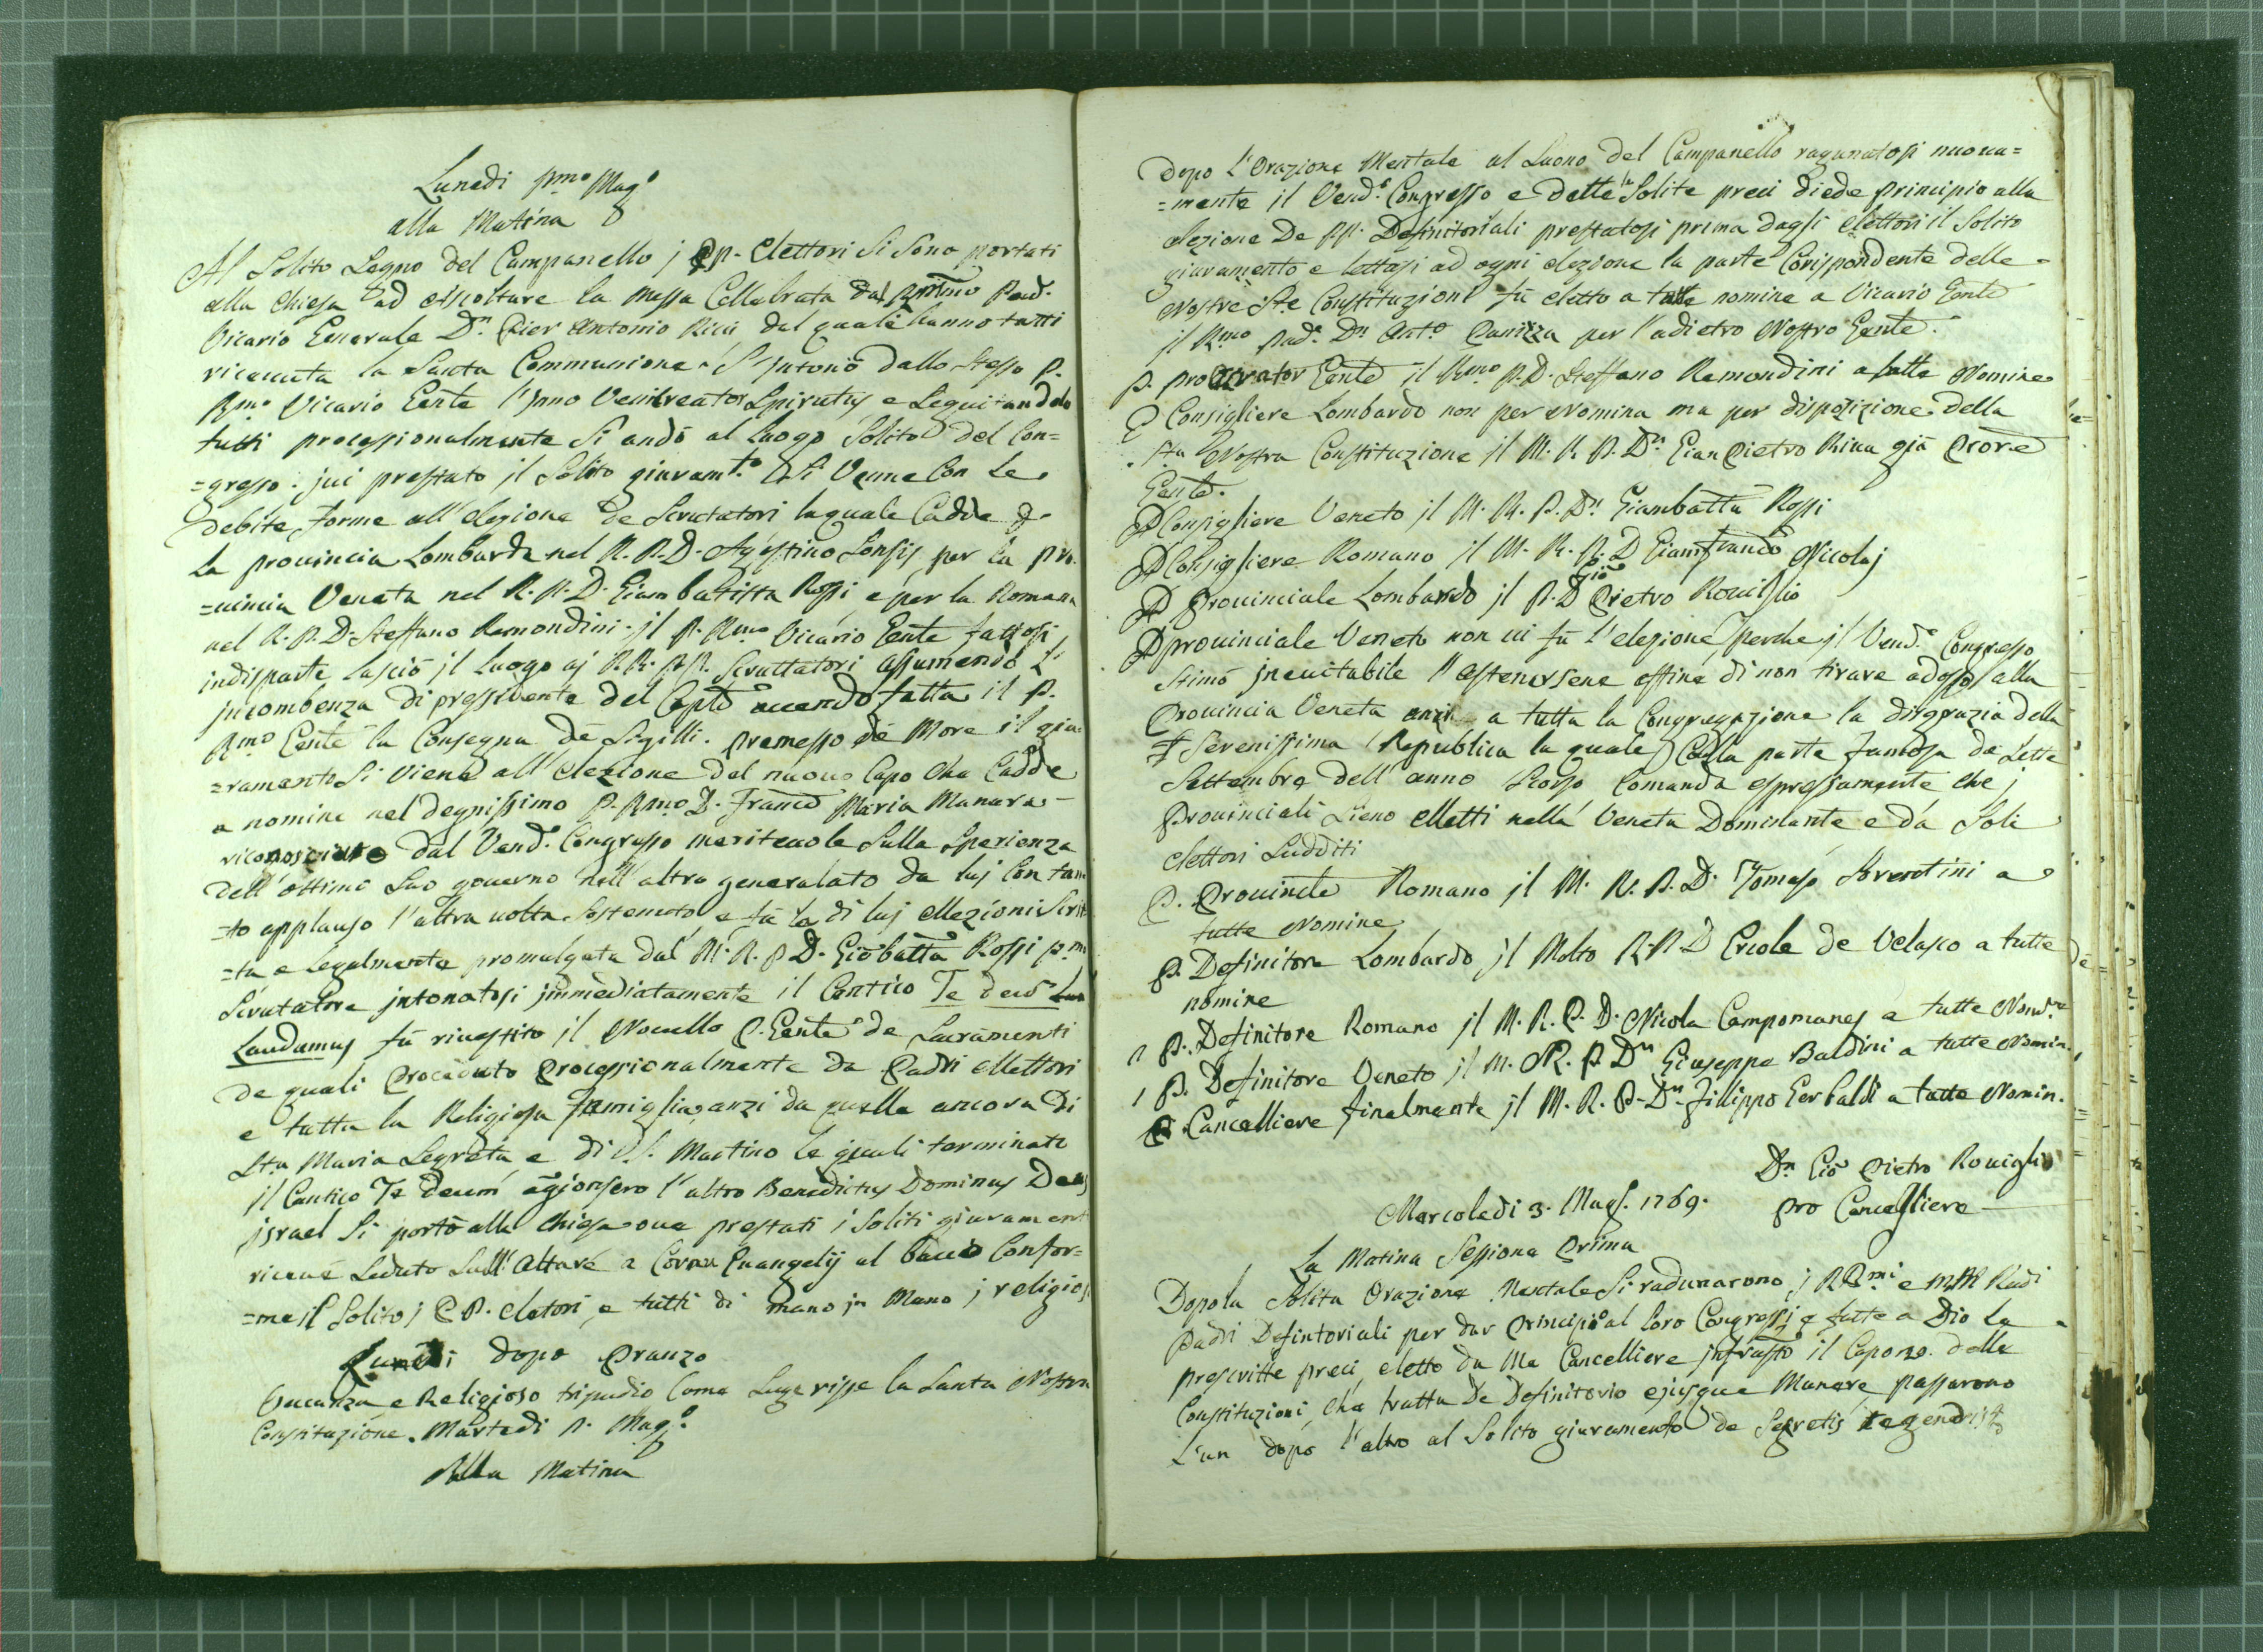 Lunedi pmo Mago
alla Matina
Al Solito Segno del Campanello j PP. Elettori Si Sono portati
alla Chiesa ad Ascoltare la Messa Cellebrata dal Primo Pad.
Vicario Generale Dn Pier Antonio Ricci dal quale hanno tutti
riceuuta la Santa Communione. S'Intonò dallo Stesso P.
Rmo Vicario Gente l'Inno Veni Creator Spiritus e Seguitandolo
tutti processionalmente Si andò al Luogo Solito del Con=
=gresso. iui prestato il Solito giuramto Si Venne Con le
debite forme all'Elezione de Scrutatori la quale Cadde p.
la prouincia Lombarda nel R. P. D. Agostino Sonsis, per la pro=
=uincia Veneta nel R. P. D. Giambatista Rossi e per la Romana
nel R. P. D. Steffano Remondini. il P. Rmo Vicario Gente fattosi
indisparte lasciò il luogo aj RR. PP. Scruttatori assumendo l'
incombenza di pressidente del Capto auendo fatta il P.
Rmo Gente la Consegna de Sigilli. premesso de More il giu=
=ramento Si Viene all'Elezione del nuouo Capo Che Cadde
a nomine nel degnissimo P. Rmo D. Franco Maria Manara
riconosciuto dal Vend. Congresso meriteuole Sulla Sperienza
dell'ottimo Suo gouerno nell'altro generalato da luj Con tan=
=to applauso l'altra uolta Sostenuto e fù la di luj ellezioni Scrit=
=ta e legalmente promulgata dal M. R. P. D. Giobatta Rossi pmo
Scrutatore jntonatosi jmmediatamente il Cantico Te deum
Laudamus fù riuestito il Nouello P. Gente de Sacramenti
de quali Proceduto Processionalmente da Padri elletori
e tutta la Religiosa Famiglia, anzi da quelle ancora di
Sta Maria Segreta e di S. Martino le quali terminato
il Cantico Te deum agionsero l'altro Benedictus Dominus Deus
israel Si portò alla Chiesa oue prestati i Soliti giurament
riceuè Seduto Sull'Altare a Cornu Euangelij al bacio Confor=
=me il Solito j PP. eletori, e tutti di mano jn Mano j religiosi
Lunedi dopo Pranzo
Vacanza e Religioso tripudio Come Suggerisse la Santa Nostra
Constituzione. Martedi Mago
Alla Matina
Dopo l'Orazione Mentale al Suono del Campanello ragunatosi nuoua=
=mente il Vend. Congresso e dette le Solite preci diede principio alla
elezione De PP. Definitoriali prestatosi prima dagli elettori il Solito
giuramento e lettasi ad ogni elezione la parte Corispondente delle
Nostre Ste Constituzioni fù eletto a tutte nomine a Vicario Gente
il Rmo Pad. Dn Anto Panizza per l'adietro Nostro Gente.
P. Procurator Gente il Rmo P. D. Steffano Remondini a tutte Nomine
P Consigliere Lombardo non per Nomina ma per disposizione della
Sta Nostra Constituzione il M. R. P. Dn Gian Pietro Riua già Prore
Gente.
P Consigliere Veneto il M. R. P. Dn Giambatta Rossi
P Consigliere Romano il M. R. P. D Gianfranco Nicolaj
P Prouinciale Lombardo il P. D Gio Pietro Rouiglio
P prouinciale Veneto non ui fù l'elezione perche il Vend. Congresso
Stimò ineuitabile l'astenersene affine di non tirare adosso alla
Prouincia Veneta anzi a tutta la Congregazione la disgrazia della
Serenissima Republica la quale Colla parte famosa de Sette
Settembre dell'anno Scorso Comanda espressamente Che j
Prouinciali Sieno elletti nella Veneta Dominante e da Soli
elettori Sudditi
P. Prouincle Romano il M. R. P. D. Tomaso Sorentini a
tutte Nomine
P. Definitore Lombardo il Molto R. P. D Ercole de Velasco a tutte
nomine
P. Definitore Romano il M. R. P. D. Nicola Campomanes a tutte Nomne
P. Definitore Veneto il M. R. P. Dn Giuseppe Baldini a tutte Nomin.
P. Cancelliere finalmente il M. R. P. Dn Fillippo Gerbaldi a tutte Nomin.
Dn Gio Pietro Rouiglio
pro Cancelliere
Mercoledi 3. Mag. 1769.
La Matina Sessione Prima
Dopo la Solita Orazione Mentale Si radunarono j RRmi e MM Rudi
Padri Defintoriali per dar Principio al loro Congressi, e fatte a Dio le
prescritte preci, eletto da Me Cancelliere infrasto il Capo zo. delle
Constituzioni, che tratta De Definitorio ejusque Munere passarono
L'un dopo l'altro al Solito giuramento de Segretis tegendis